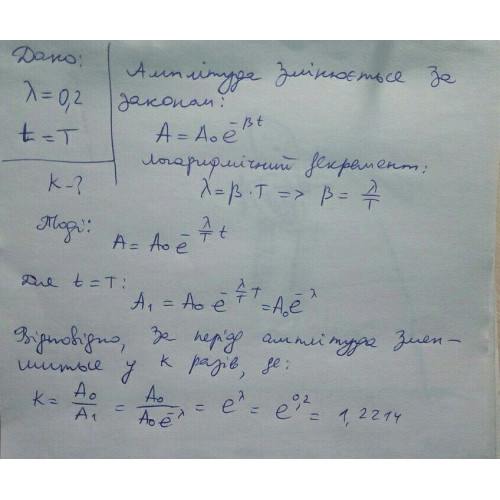 Дано:
λ = 0,2
t = T
к - ?
Амплітуда змінюється за
законом:
A = A₀ e^(-βt)
логарифмічний декремент:
λ = β · T => β = λ/T
Тоді:
A = A₀ e^(-λ/T t)
Для t = T:
A₁ = A₀ e^(-λ/T T) = A₀ e^(-λ)
Відповідно, за період амплітуда змен-
шиться у к разів, де:
к = A₀/A₁ = A₀/(A₀ e^(-λ)) = e^λ = e^0,2 = 1,2214